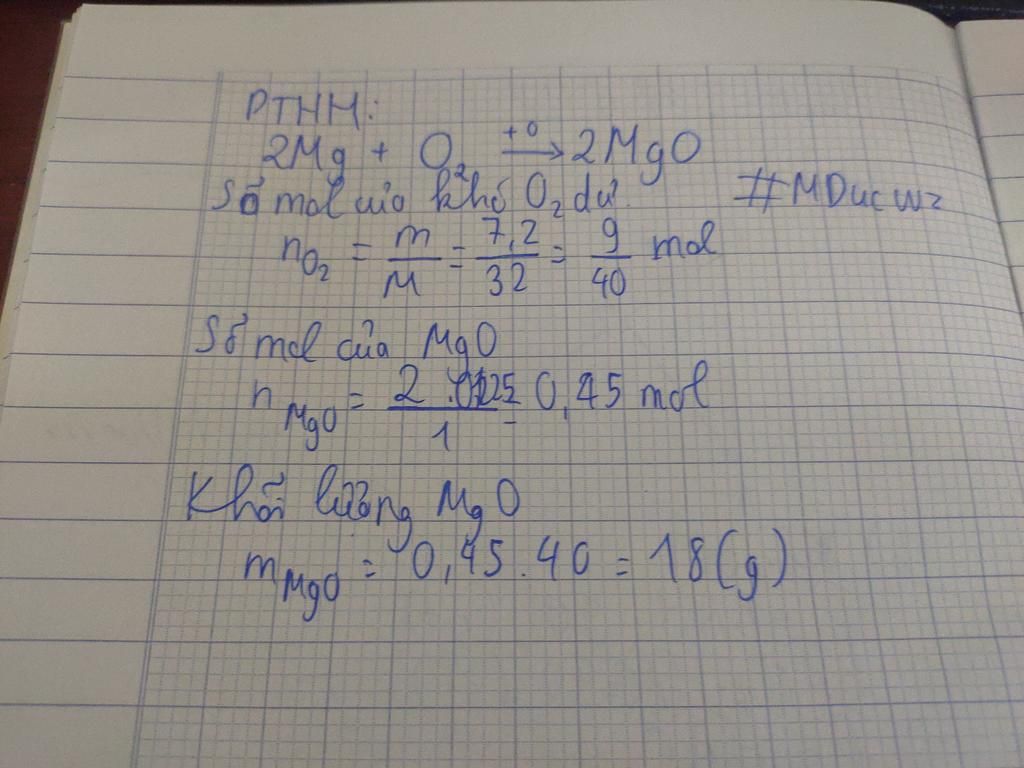 PTHH:
2Mg + O₂ —t°→ 2MgO
Số mol của khí O₂ dư #MDucwz
n_O₂ = m/M = 7,2/32 = 9/40 mol
Số mol của MgO
n_MgO = 2 . /1 = 0,45 mol
Khối lượng MgO
m_MgO = 0,45.40 = 18(g)